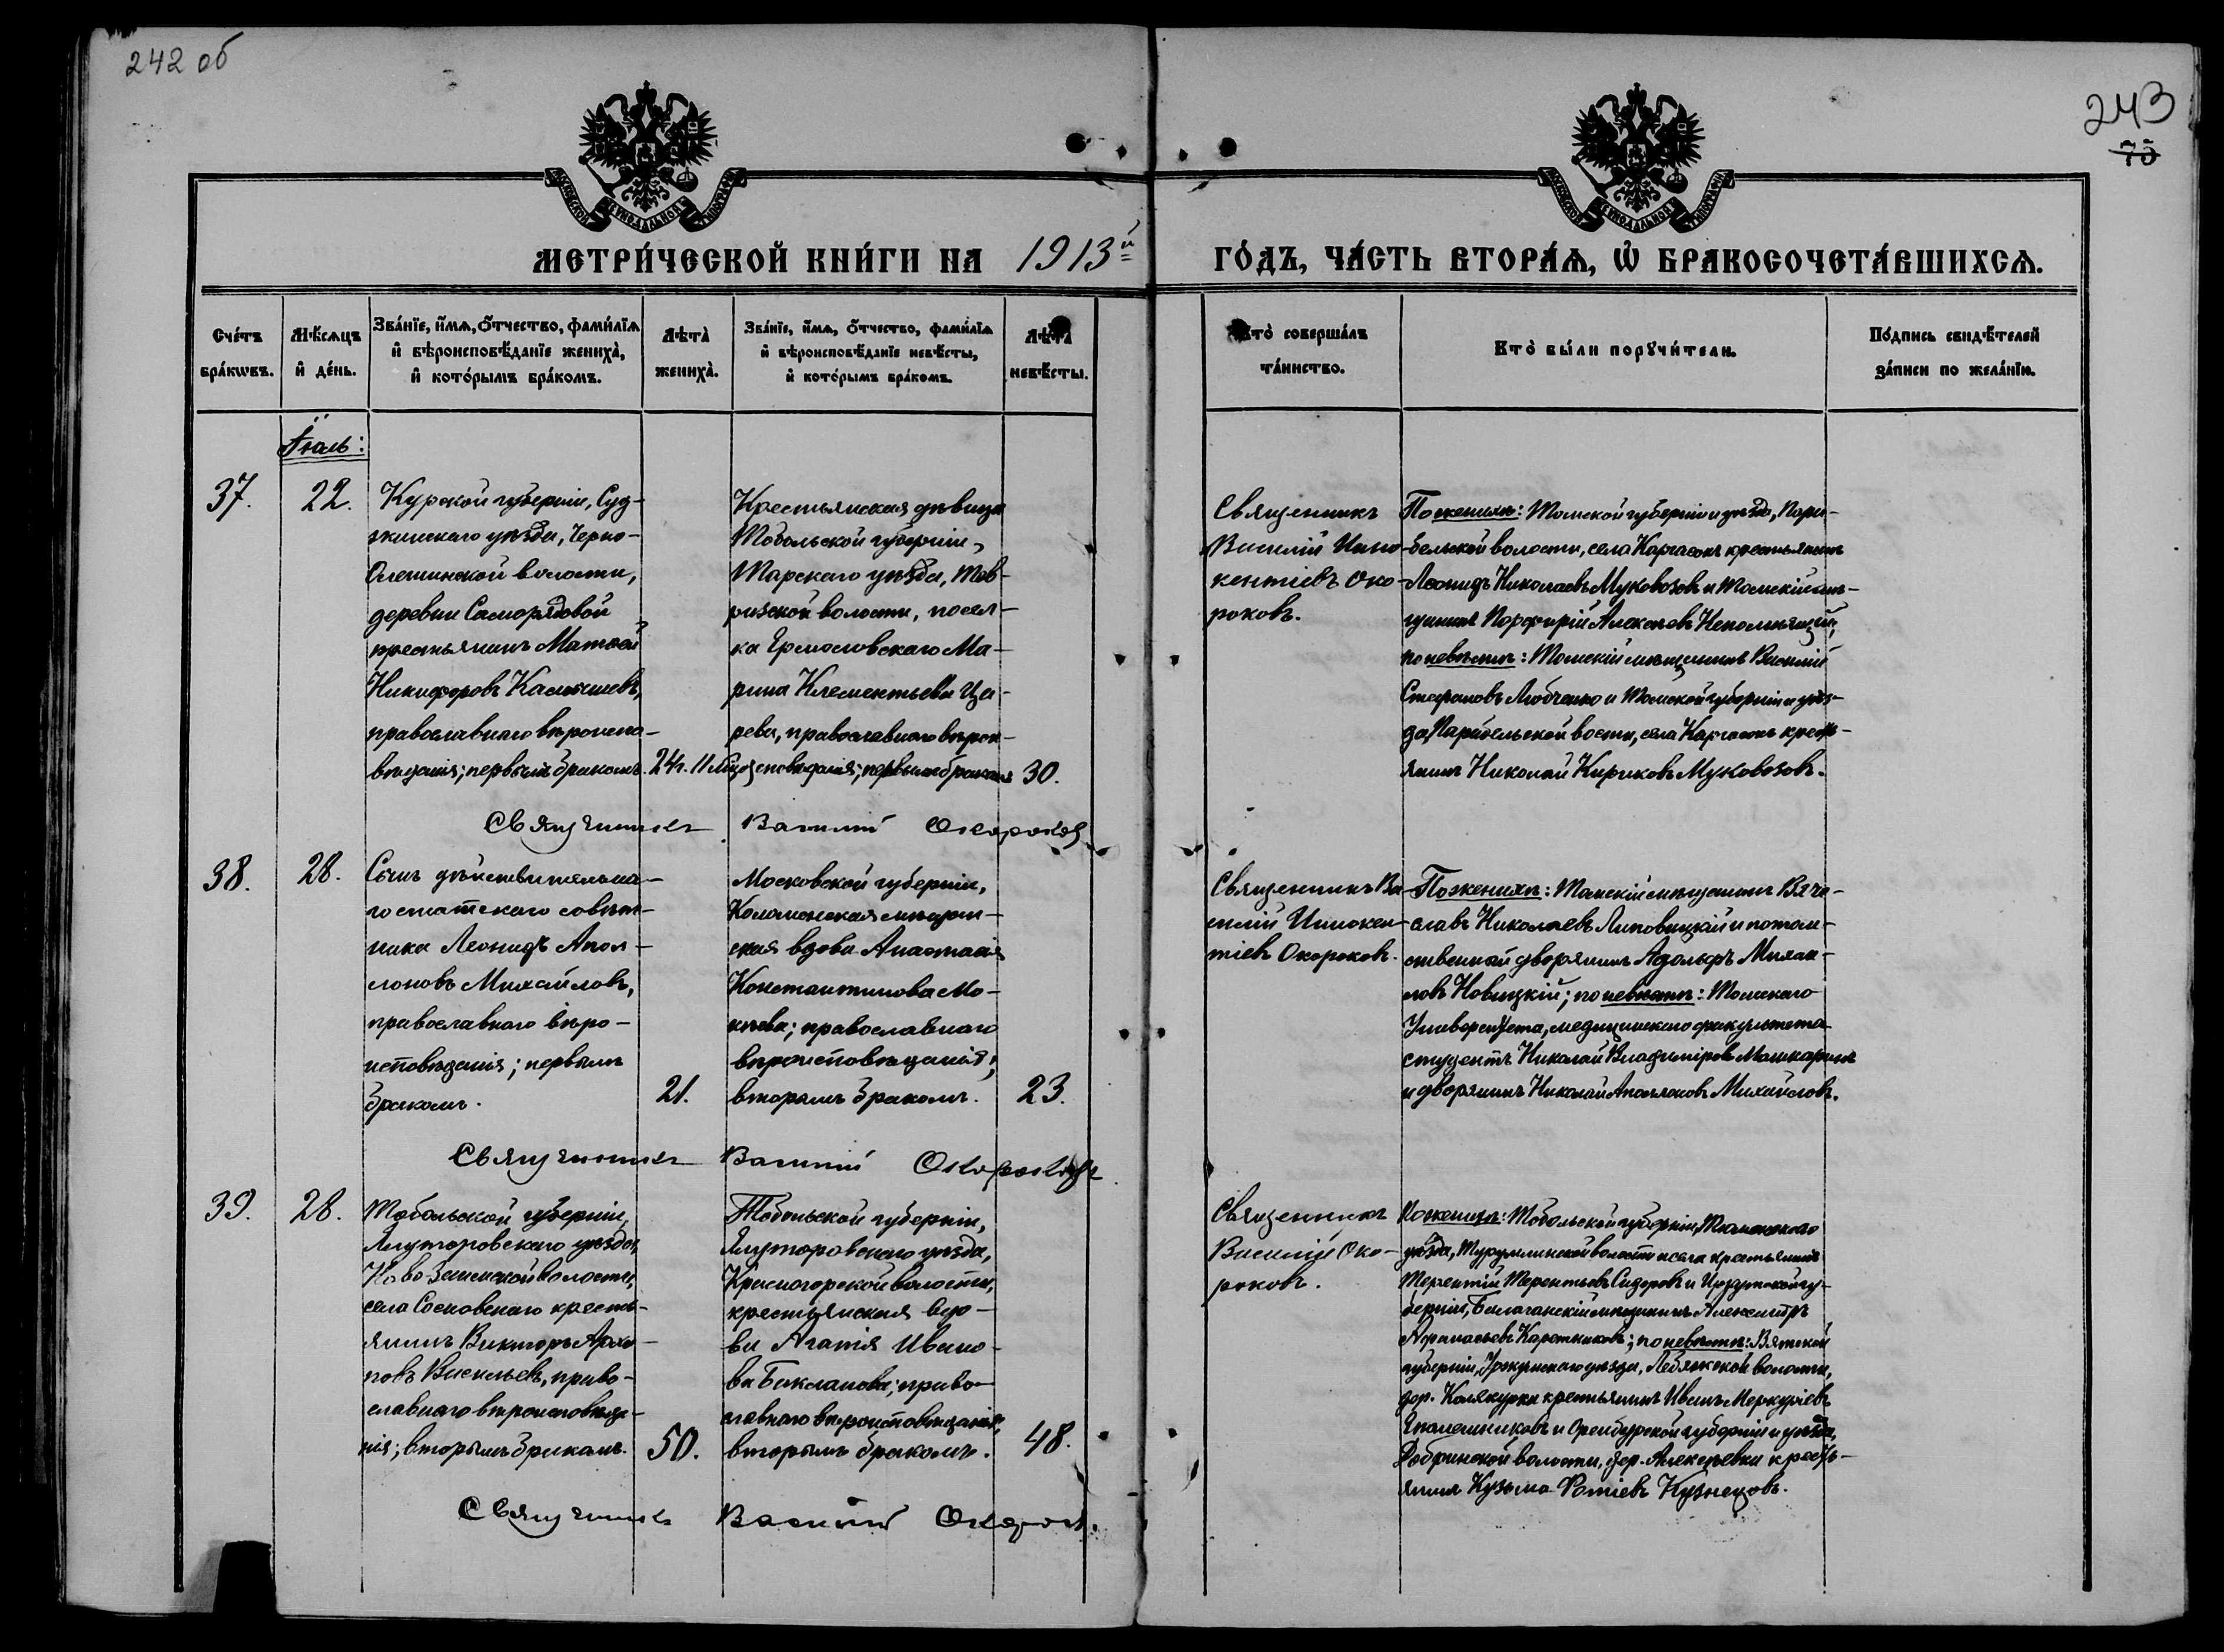 242 об
243
75
МЕТРИ́ЧЕСКОЙ КНИ́ГИ НА 1913й
ГО́ДЪ, ЧА́СТЬ ВТОРА́Ѧ, Ѽ БРАКОСОЧЕТА́ВШИХСѦ.
Сче́тъ бра́кѡвъ.
Мѣ́сѧцъ и҆ де́нь.
Зва́нїе, и҆́мѧ, о҆́тчество, фами́лїѧ
и҆ вѣроисповѣ́данїе жениха̀,
и҆ кото́рымъ бра́комъ.
Лѣта̀ жениха̀.
Зва́нїе, и҆́мѧ, о҆́тчество, фами́лїѧ
и҆ вѣроисповѣ́данїе невѣ́сты,
и҆ кото́рымъ бра́комъ.
Лѣта̀ невѣ́сты.
Кто̀ соверша́лъ та́инство.
Кто̀ бы́ли порꙋчи́тели.
По́дпись свидѣ́телей
за́писи по жела́нїю.
Іюль:
37.
22.
Курской губерніи, Суд-
жинскаго уѣзда, Черно-
Олешинской волости,
деревни Саморядовой
крестьянинъ Матѳей
Никифоровъ Камышевъ,
православнаго вѣроиспо-
вѣданія; первымъ бракомъ.
24 г. 11 м.
Крестьянская дѣвица
Тобольской губерніи,
Тарскаго уѣзда, Тев-
ризской волости, посел-
ка Ермоловскаго Ма-
рина Клементьева Ца-
рева, православнаго вѣрои-
сповѣданія; первымъ бракомъ
30.
Священникъ
Василій Инно-
кентіевъ Око-
роковъ.
По женихѣ: Томской губерніи и уѣзда, Пари-
бельской волости, села Каргасокъ крестьянинъ
Леонидъ Николаевъ Муковозовъ и Томскій мѣ-
щанинъ Порфирій Алексѣевъ Непомнящій;
по невѣстѣ: Томскій мѣщанинъ Василій
Стефановъ Любченко и Томской губерніи и уѣз-
да, Парибельской вости, села Каргасокъ кресть-
янинъ Николай Кириковъ Муковозовъ.
Священникъ Василій Окороковъ
38.
28.
Сынъ дѣйствительна-
го статскаго совѣт-
ника Леонидъ Апол-
лоновъ Михайловъ,
православнаго вѣро-
исповѣданія; первымъ
бракомъ.
21.
Московской губерніи,
Коломенская мѣщан-
ская вдова Анастасія
Константинова Мо-
кѣева; православнаго
вѣроисповѣданія;
вторымъ бракомъ.
23.
Священникъ Ва-
силій Иннокен-
тіевъ Окороковъ.
По женихѣ: Томскій мѣщанинъ Вяче-
славъ Николаевъ Липовицкій и потом-
ственный дворянинъ Адольфъ Михаи-
ловъ Новицкій; по невѣстѣ: Томскаго
Университета, медицинскаго факультета
студентъ Николай Владиміровъ Машкаринъ
и дворянинъ Николай Аполлоновъ Михайловъ.
Священникъ Василій Окороковъ
39.
28.
Тобольской губерніи,
Ялуторовскаго уѣзда,
Ново-Заимской волости,
села Сосновскаго кресть-
янинъ Викторъ
Васильевъ, право-
славнаго вѣроисповѣда-
нія; вторымъ бракомъ.
50.
Тобольской губерніи,
Ялуторовскаго уѣзда,
Красногорской волости,
крестьянская вдо-
ва Агапія Ивано-
ва Бакланова; право-
славнаго вѣроисповѣданія;
вторымъ бракомъ.
48.
Священникъ
Василій Око-
роковъ.
По женихѣ: Тобольской губерніи, Тюменскаго
уѣзда, волости и села крестьянинъ
Терентій Терентьевъ Сидоровъ и Иркутской гу-
берніи, Балаганскій мѣщанинъ Александръ
Афанасьевъ Каротниковъ; по невѣстѣ: Вятской
губерніи, Уржумскаго уѣзда, Лебяжской волости,
дер. Колякурки крестьянинъ Иванъ Меркуріевъ
и Оренбургской губерніи и уѣзда,
Добринской волости, дер. Алексѣевки кресть-
янинъ Кузьма Фотіевъ Кузнецовъ.
Священникъ Василій Окороков.